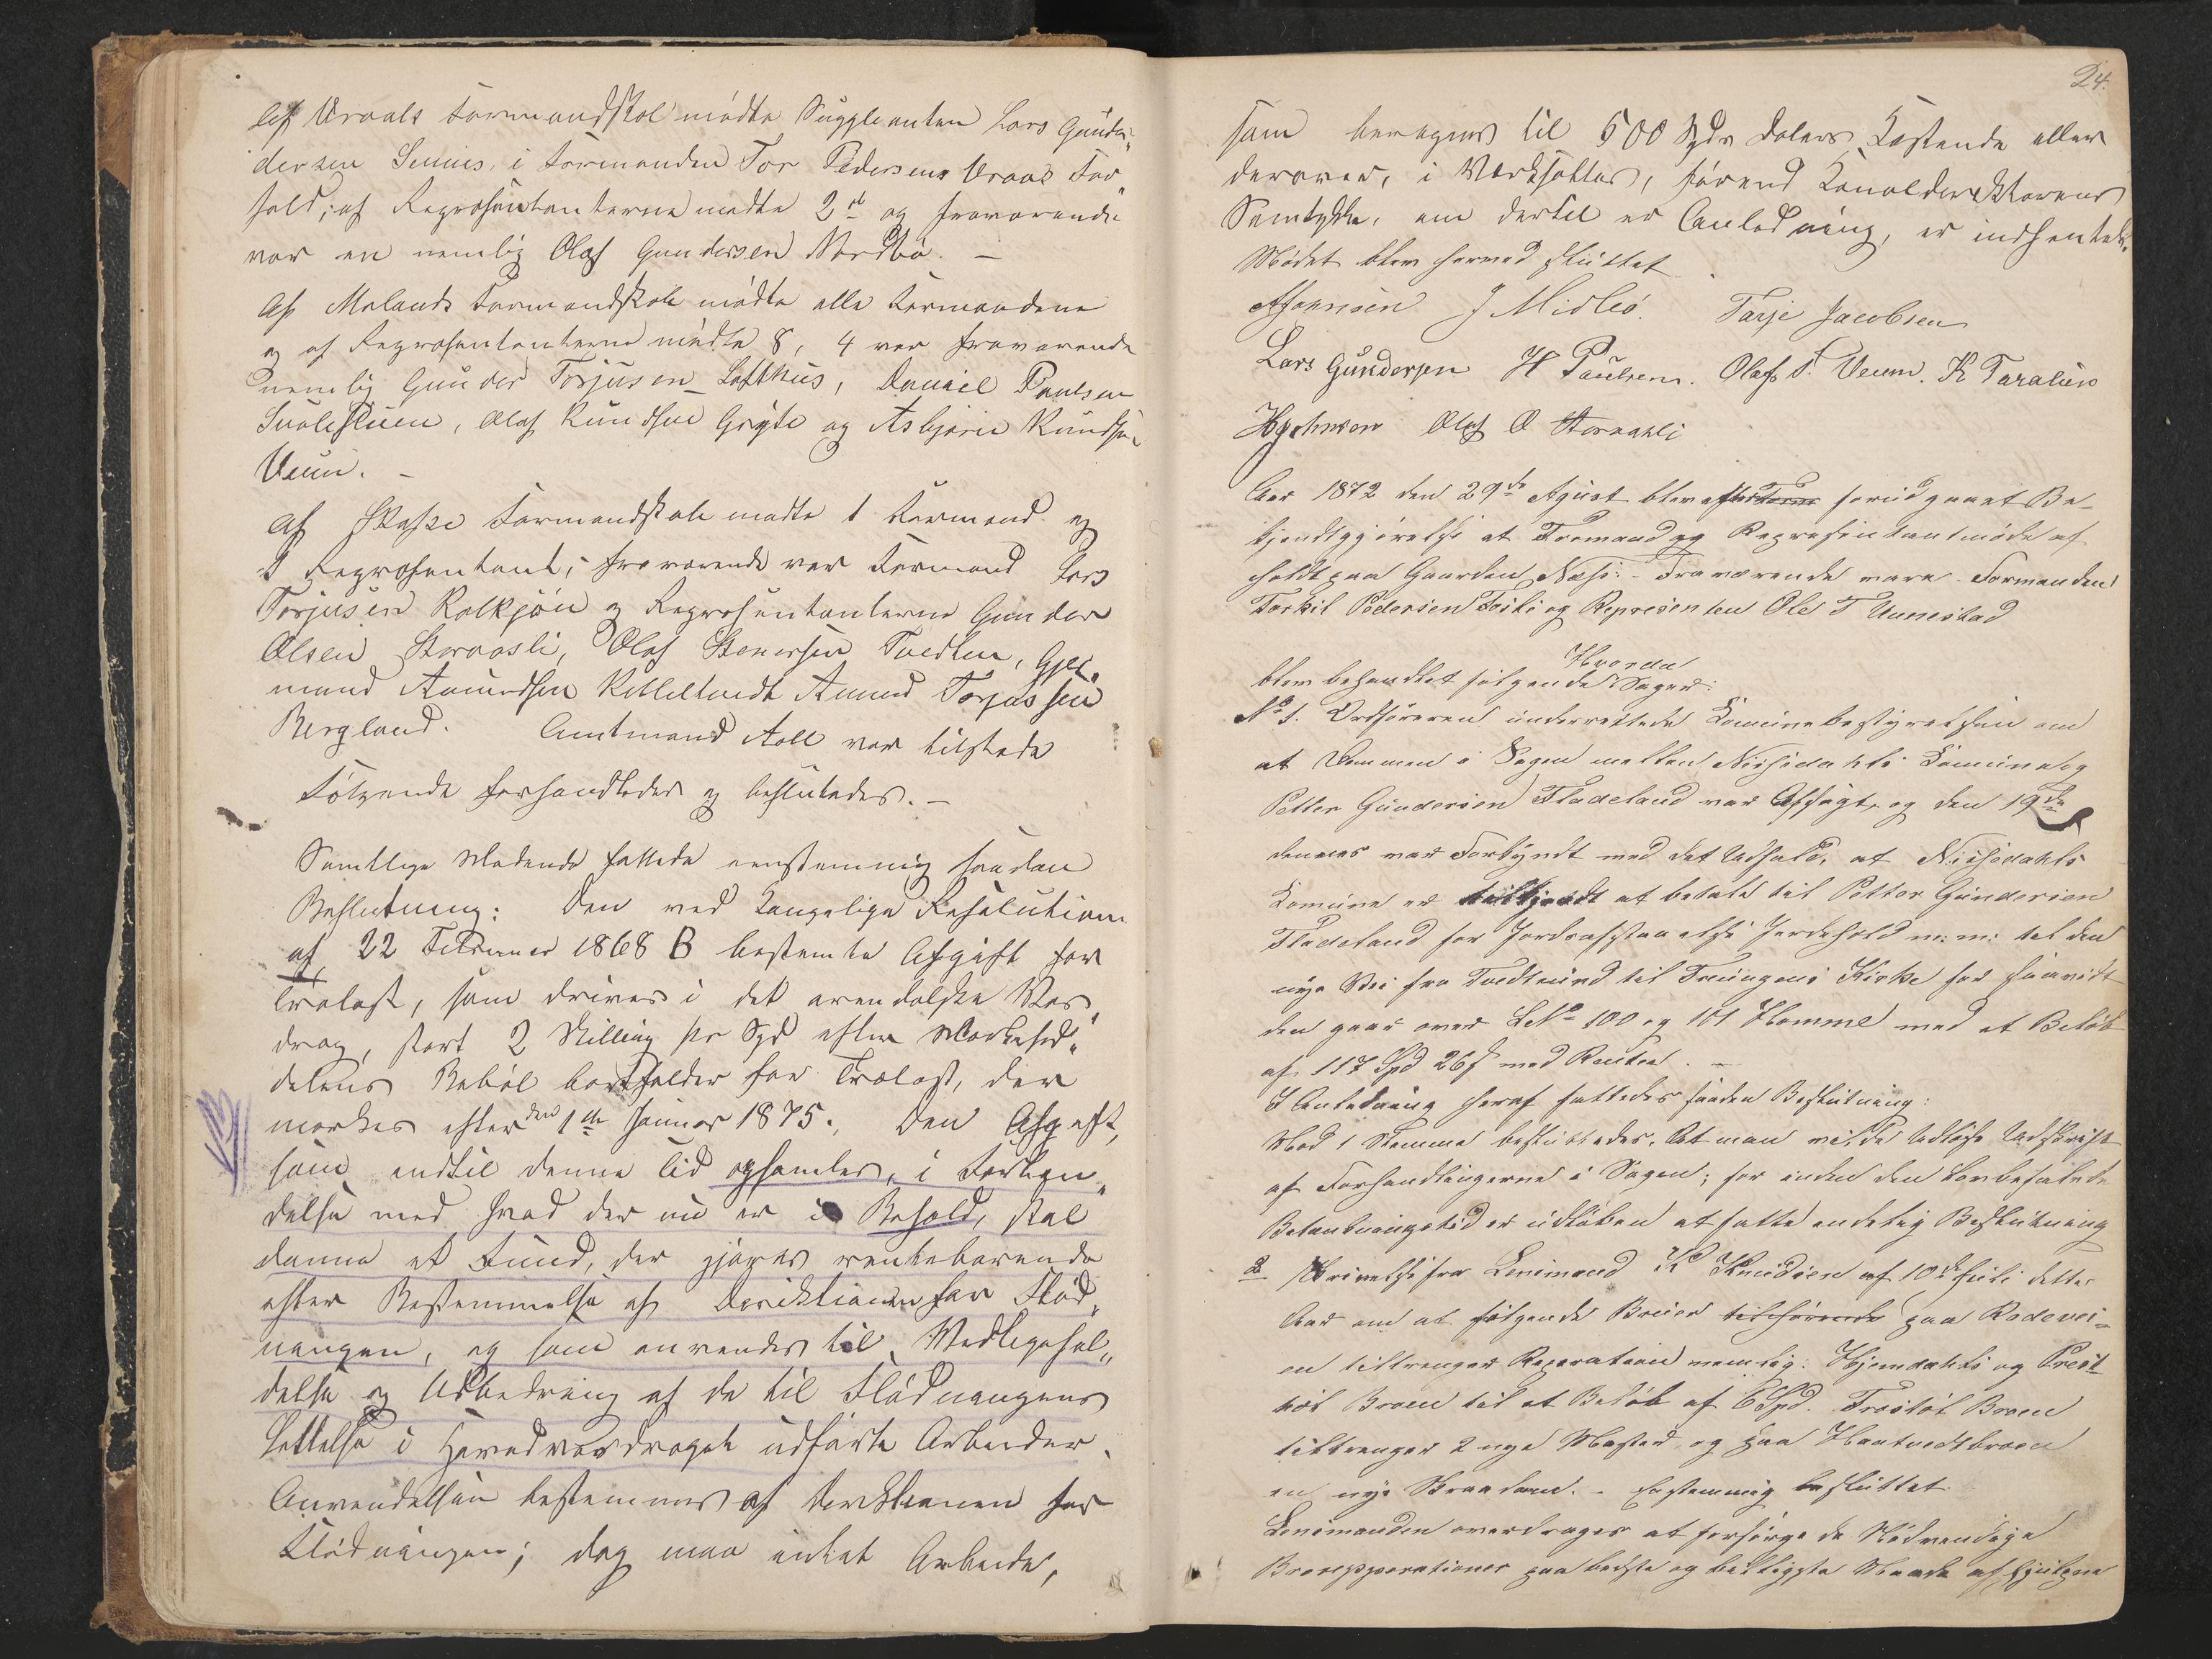 Af Vraals Formandskab mødte Suppleanten Lars Gunder„
dersen Seines, i Formanden Tor Pedersens Vraas For„
fald; af Repræsentanterne mødte 2de og fraværende
var en nemlig Olaf Gundersen Nordbø. —
Af Molands Formandskab mødte alle Formændene
og af Repræsentanterne mødte 8, 4 var fraværende
nemlig Gunder Torjusen Lofthus, Daniel Paulsen
Olaf Knudsen Grøte og Asbjørn Knudsen
Veum. —
Af Skafse Formandskab mødte 1 Formand og
1 Repræsentant; fraværende var Formand Lars
Torjusen Rolkjøn og Repræsentanterne Gunder
Olsen Storaasli, Olaf Stenersen Tvedten, Gjer„
mund Aamundsen Kittiltvedt Amund Torjussen
Bergland. Amtmand Aall var tilstede
Følgende forhandledes og besluttedes. —
Samtlige Mødende fattede eenstemmig saadan
Beslutning: Den ved Kongelige Resolution
af 22 Februar 1868 B bestemte Afgift for
Trælast, som drives i det arendalske Vas„
drag, stort 2 Skilling pr Spd efter Markesed„
delens Beløb bortfalder for Trælast, der
merkes efter den 1ste Januar 1875. Den Afgift,
som indtil denne Tid opsamles, i Forbin„
delse med hvad der nu er i Behold, skal
danne et Fund, der gjøres rentebærende
efter Bestemmelse af Direktionen for Flød„
ningen, og som anvendes til Vedligehol„
delse og Udbedring af de til Flødningens
Lettelse i Hovedvasdraget udførte Arbeider.
Anvendelsen bestemmes af Direktionen for
Flødningen; dog maa intet Arbeide,
24.
som beregnes til 500 Spds Dalers Kostende eller
derover, i Verksættes, førend Kanaldirektørens
Samtykke, om dertil er Anledning, er indhentet.
Mødet blev herved sluttet
J Midbø. Tarje Jacobsen
Lars Gundersen H Paulsen. Olaf T. Veum. K Taraldsen
Olaf O Storaasli
Aar 1872 den 29de Agust blev efter forudgaaet Be-
kjendtgjørelse et Formand og Representantmøde af
holdt paa Gaarden Næs: - Fraværende vare Formanden
Torkil Pedersen Foiti og Represen ten Ole T Uunestad
Hvorda
blev behandlet følgende Sager:
No 1. Ordføreren underrettede Komunebestyrelsen om
at Dommen i Sagen mellem Nissedahls Komune og
Petter Gundersen Fladeland var Afsagt, og den 19de
dennes var Forkyndt med det Udfald, at Nissedahls
Komune er tilkjendt at betale til Petter Gundersen
Fladeland for Jordafstaaelse Jerdehold m: m: til den
nye Vei fra Tvedtsund til Treungens Kirke for saavidt
den gaar over LNo 100 og 101 Homme med et Beløb
af 117 Spd 26 s med Renter. —
I Anledning heraf fattedes saadan Beslutning:
Mod 1 Stemme besluttedes, At man vilde Udløse Udskrift
af Forhandlingerne i Sagen; for inden den Lovbefalede
Betænkningstid er udløben at fatte endelig Beslutning
2 Skrivelse fra Lensmand K Knudsen af 10de Juli dette
Aar om at følgende Broer tilhørende paa Rodevei-
en tiltrenger Reparation nemlig: Hjemdahls og Prest
Broen til et Beløb af 6 Spd. Broen
tiltrenger 2 nye Master og paa Haatvedtbroen
en nye Skraadom. - Enstemmig besluttet
Lensmanden overdrages at forsørge de Nødvendige
Broreppperationer paa bedste og billigste Maade af hjulpne